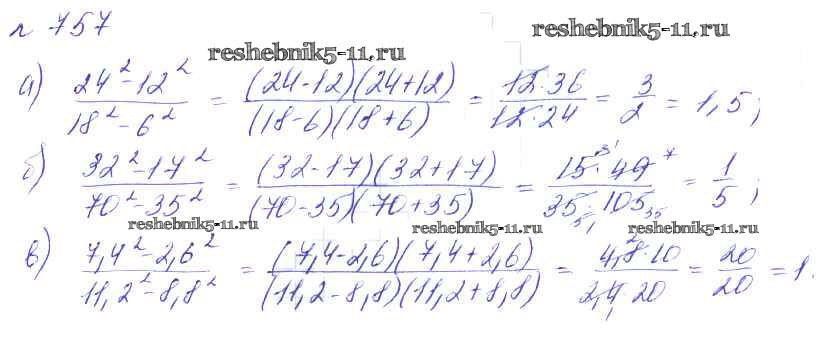 № 757
reshebnik5-11.ru
reshebnik5-11.ru
а) (24² - 12²)/(18² - 6²) = ((24-12)(24+12))/((18-6)(18+6)) = (12·36)/(12·24) = 3/2 = 1,5;
б) (32² - 17²)/(70² - 35²) = ((32-17)(32+17))/((70-35)(70+35)) = (15·49)/(35·105) = 1/5;
reshebnik5-11.ru
reshebnik5-11.ru
reshebnik5-11.ru
в) (7,4² - 2,6²)/(11,2² - 8,8²) = ((7,4-2,6)(7,4+2,6))/((11,2-8,8)(11,2+8,8)) = (4,8·10)/(2,4·20) = 20/20 = 1.